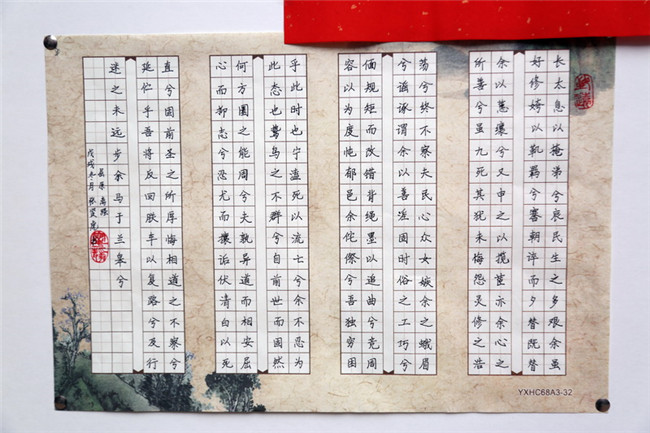 长太息以掩涕兮哀民生之多艰余虽
好修姱以鞿羁兮謇朝谇而夕替既替
余以蕙纕兮又申之以揽茝亦余心之
所善兮虽九死其犹未悔怨灵修之浩
荡兮终不察夫民心众女嫉余之蛾眉
兮谣诼谓余以善淫固时俗之工巧兮
偭规矩而改错背绳墨以追曲兮竞周
容以为度忳郁邑余侘傺兮吾独穷困
乎此时也宁溘死以流亡兮余不忍为
此态也鸷鸟之不群兮自前世而固然
何方圜之能周兮夫孰异道而相安屈
心而抑志兮忍尤而攘诟伏清白以死
直兮固前圣之所厚悔相道之不察兮
延伫乎吾将反回朕车以复路兮及行
迷之未远步余马于兰皋兮
离骚
戊戌冬月 张
YXHC68A3-32